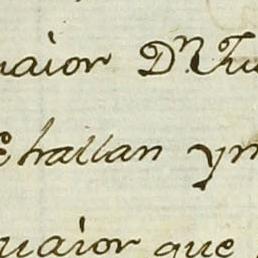 maior Dⁿ. Ju
hallan yn
maior que